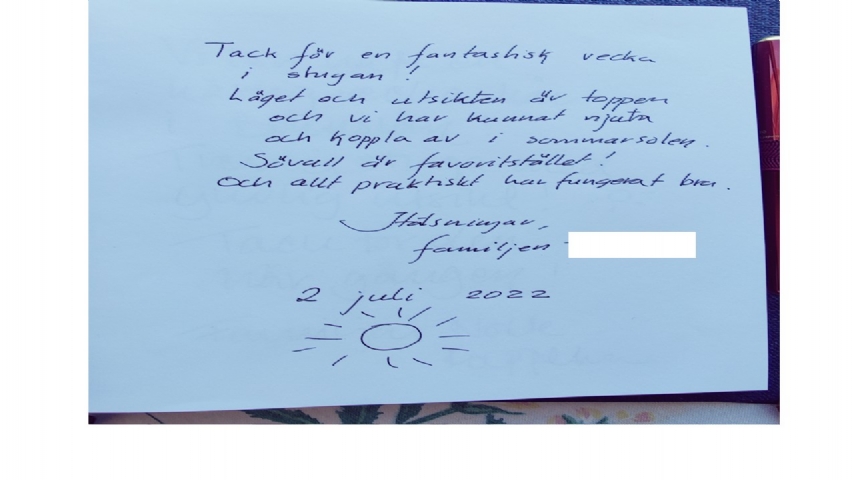 Tack för en fantastisk vecka
i stugan!
Läget och utsikten är toppen
och vi har kunnat njuta
och koppla av i sommarsolen.
Sövall är favoritstället!
Och allt praktiskt har fungerat bra.
Hälsningar,
familjen
2 juli 2022